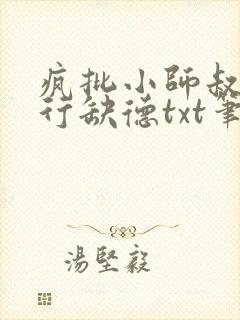 疯批小师叔
行缺德txt笔
湯堅毅